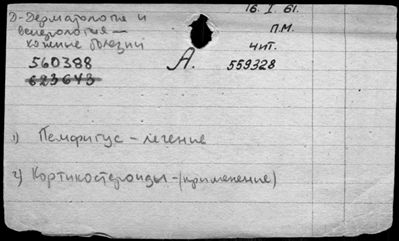 Д-Дерматология и
венерология —
кожные болезни
560388
623643
А.
16. I. 61.
П.М.
чит.
559328
1) Пемфигус - лечение
2) Кортикостероиды - (применение)